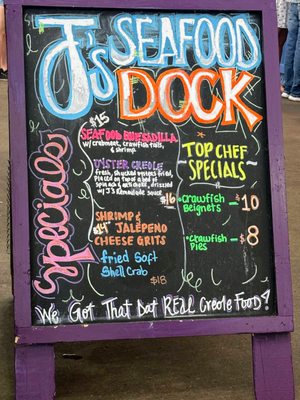 J's SEAFOOD
DOCK
Specials
$15
SEAFOOD QUESADILLA
w/ crabmeat, crawfish tails,
& shrimp
OYSTER CREOLE
fresh, shucked oysters fried,
placed on top of a bed of
spinach & artichoke, drizzled
w/ J's Remoulade sauce
$16
SHRIMP &
$14 JALAPENO
CHEESE GRITS
fried Soft
Shell Crab
$18
TOP CHEF
SPECIALS
•Crawfish — $10
Beignets
•Crawfish — $8
Pies
We Got That Dat REAL Creole Food!